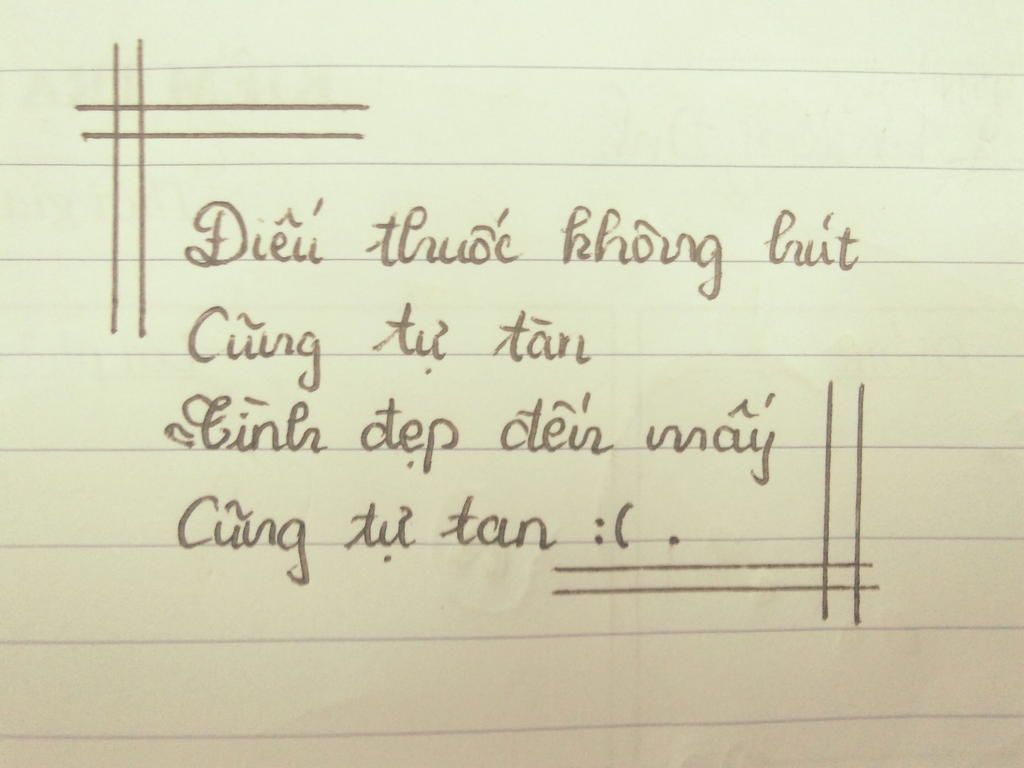 Điếu thuốc không hút
Cũng tự tàn
Tình đẹp đến mấy
Cũng tự tan :( .